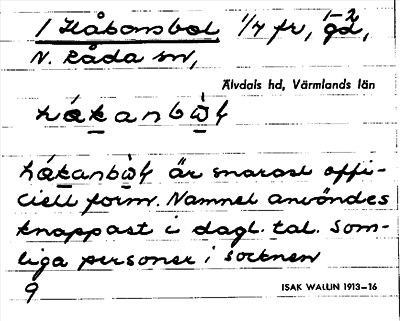 1 Håkonsbol 1/4 fr, 1-2 gd,
N. Råda sn,
Älvdals hd, Värmlands län
hákanbò̱ɫ
hákanbò̱ɫ är snarast offi-
ciell form. Namnet användes
knappast i dagl. tal. Som-
liga personer i socknen
9
ISAK WALLIN 1913–16